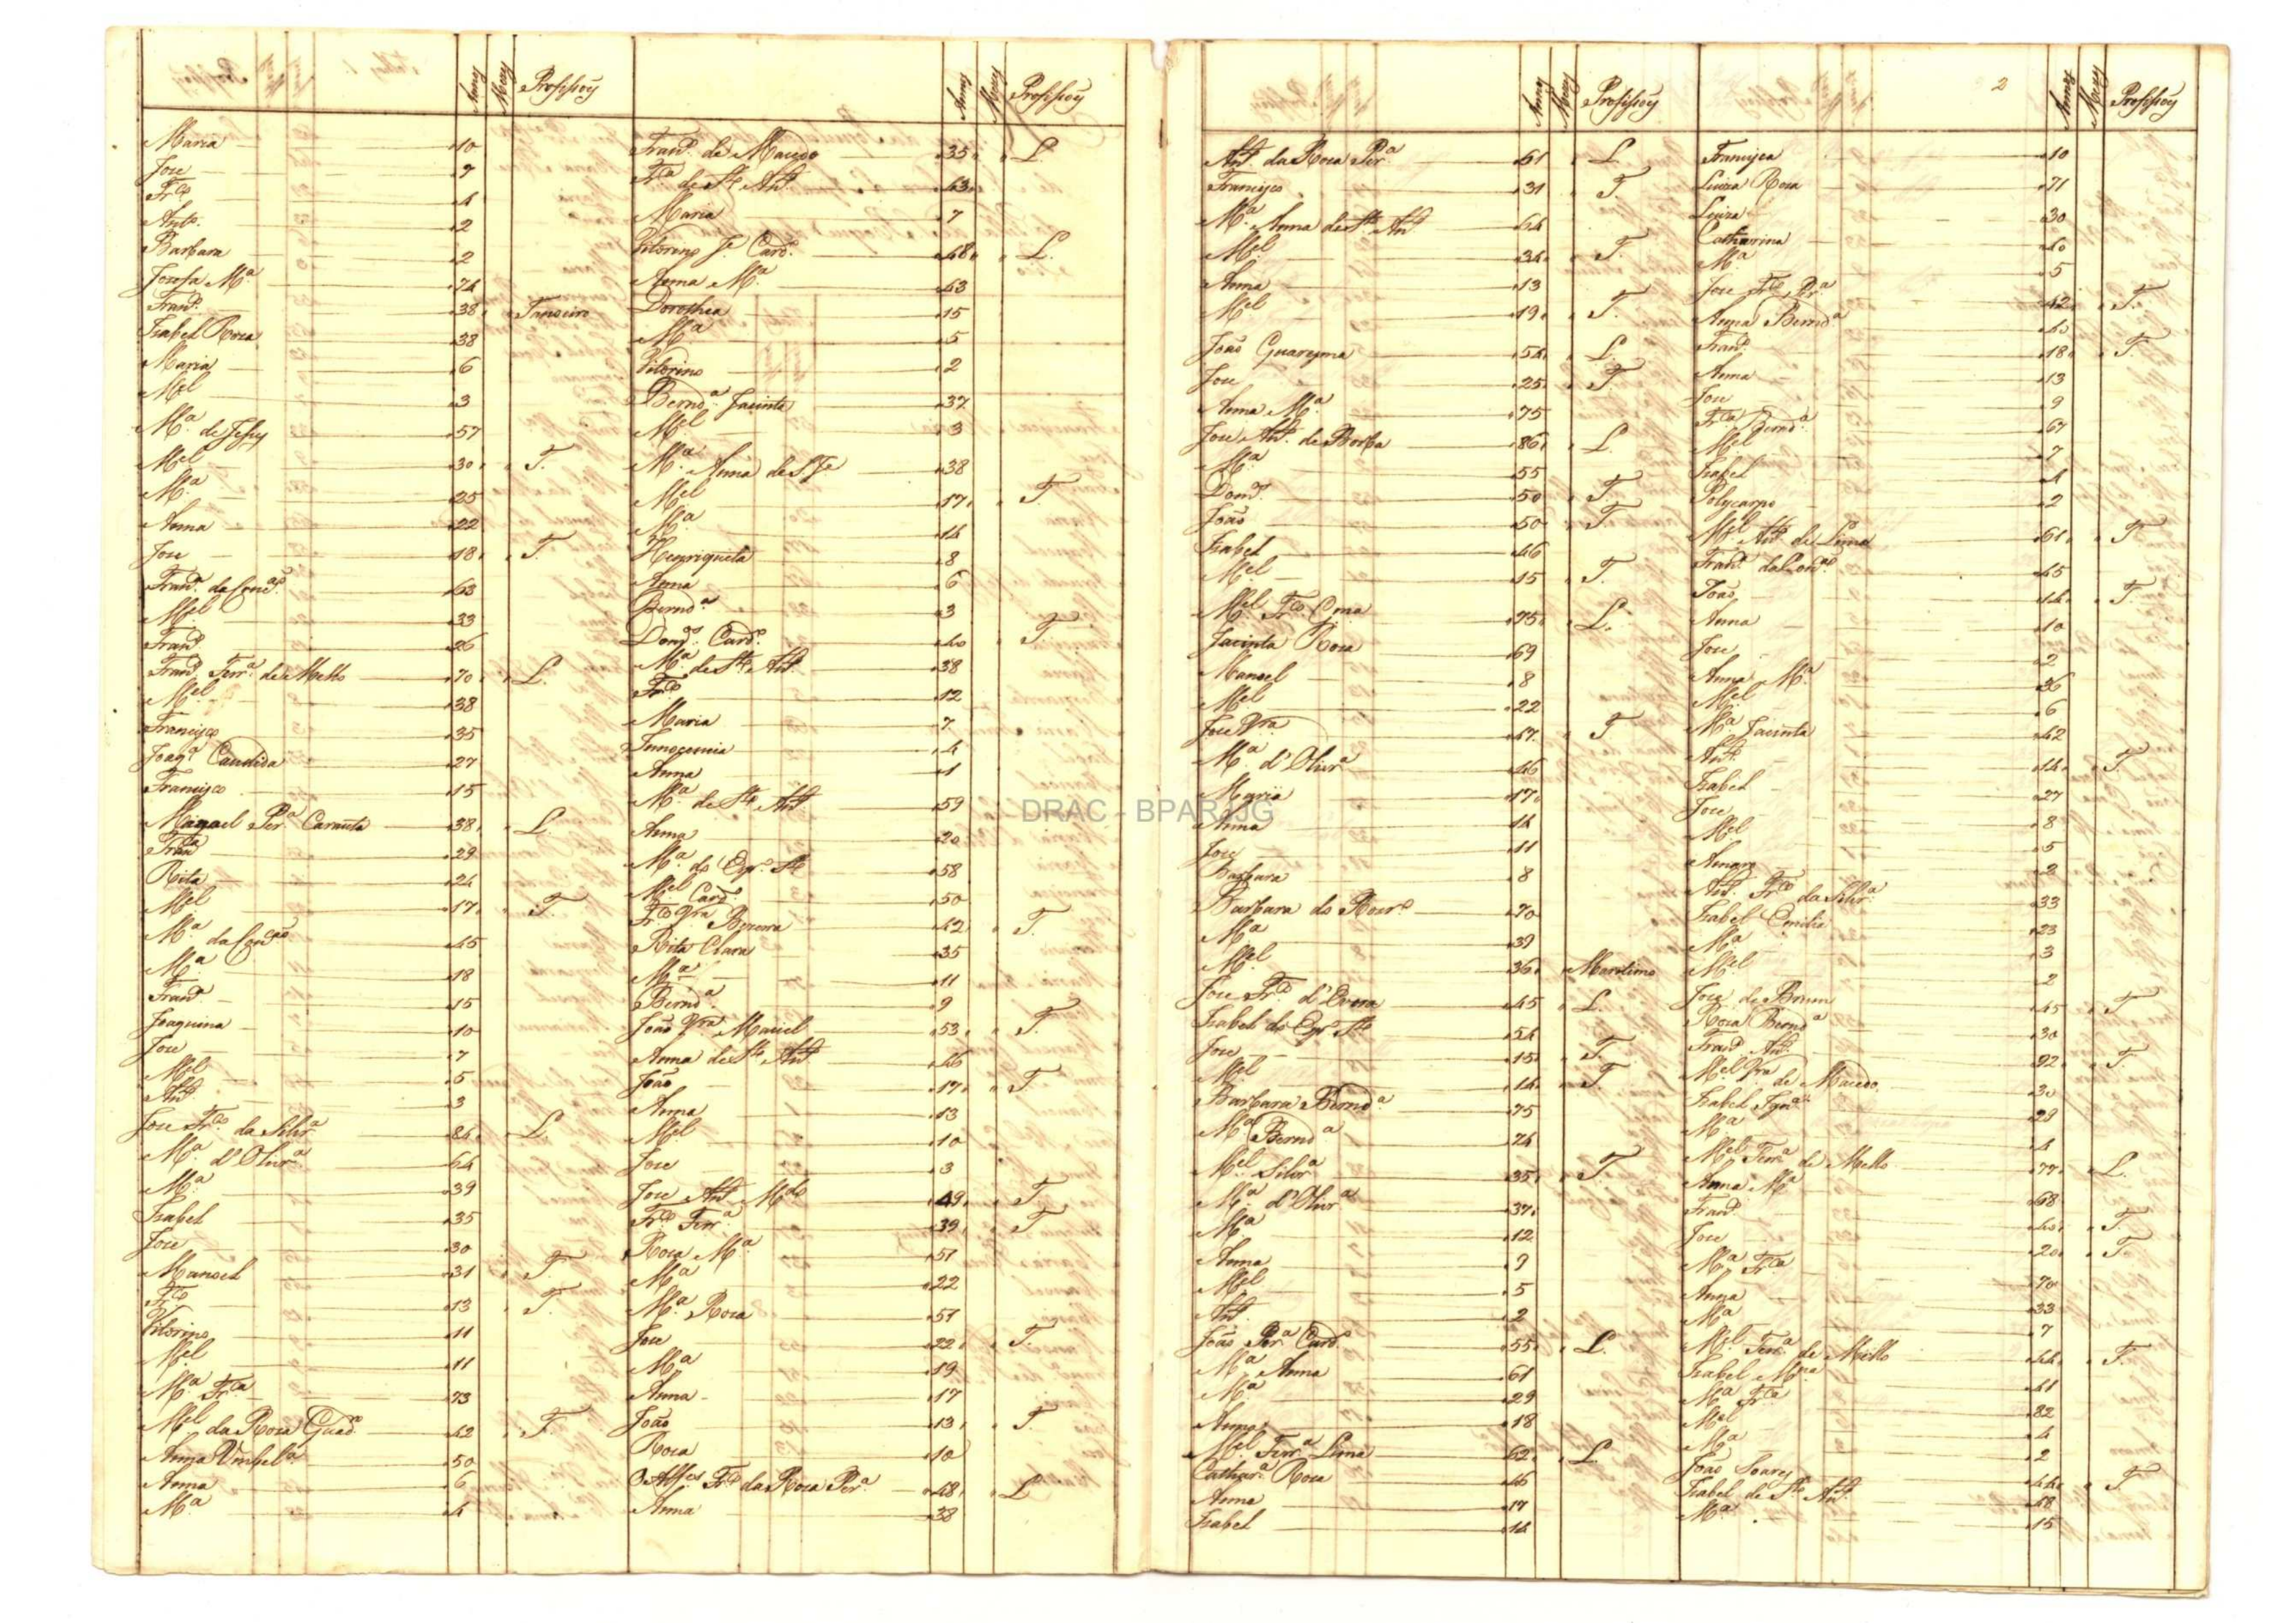 Annos Mezes Profissoẽs
Maria 10
Joze 7
Fr.co 4
Anto. 2
Barbara 2
Josefa M.a 74
Fran.co 38 Tanoeiro
Izabel Roza 38
Maria 6
M.el 3
M.a de Jesus 57
M.el 30 T.
M.a 25
Anna 22
Joze 18 T.
Fran.ca da Conc.ção 63
M.el 33
Fran.co 26
Fran.co Ferr.a de Mello 70 L.
M.el 38
Francisco 35
Joaq.a Candida 27
Francisco 15
Manoel Per.a 38 L.
Fran.ca 29
Rita 24
M.el 17 T.
M.a da Con.ção 45
M.a 18
Fran.ca 15
Joaquina 10
Joze 7
M.el 5
Ant.o 3
Joze Fr.co da Silvr.a 84 L.
M.a d'Olivr.a 64
M.a 39
Izabel 35
Joze 30
Manoel 31 T.
Fr.co 13 T.
Vitorino 11
M.el 11
M.a Fr.ca 73
M.el da Roza Guad.e 42 T.
Anna Umbel.a 50
Anna 6
M.a 4
Annos Mezes Profissoẽs
Fran.co de Macedo 35 L.
Fr.ca de S.to Ant.o 43
Maria 7
Vitorino J.e Card.o 48 L.
Anna M.a 43
Dorothea 15
M.a 5
Vitorino 2
Bernd.a Jacinta 37
M.el 3
M.a Anna de S. J.e 38
M.el 17 T.
M.a 14
Henriqueta 8
Anna 6
Bernd.a 3
Dom.os Card.o 40 T.
M.a de S.to Ant.o 38
Fr.co 12
Maria 7
Innocencia 4
Anna 1
M.a de S.to Ant.o 59
Anna 20
M.a do Esp.o S.to 58
M.el Card.o 50
Fr.co Vr.a Bezerra 42 T.
Rita Clara 35
M.a 11
Bernd.a 9
João Vr.a Maciel 53 T.
Anna de S.to Ant.o 46
João 17 T.
Anna 13
M.el 10
Joze 3
Joze Ant.o M.do 49 T.
Fr.co Ferr.a 39 T.
Roza M.a 51
M.a 22
M.a Roza 51
Joze 22 T.
M.a 19
Anna 17
João 13 T.
Roza 10
O Alferes Fr.co da Roza Per.a 48 L.
Anna 38
Annos Mezes Profissoẽs
Ant.o da Roza Per.a 61 L.
Francisco 31 T.
M.a Anna de S.to Ant.o 64
M.el 34 T.
Anna 13
M.el 19 T.
João Guaresma 54 L.
Joze 25 T.
Anna M.a 75
Joze Ant.o de Borba 86 L.
M.a 55
Dom.os 50 T.
João 50 T.
Izabel 46
M.el 15 T.
M.el Fr.co 75 L.
Jacinta Roza 69
Manoel 8
M.el 22
Joze Vr.a 47 T.
M.a d'Olivr.a 46
Maria 17
Anna 14
Joze 11
Barbara 8
Barbara do Rozr.o 70
M.a 39
M.el 36 Maritimo
Joze Fr.co d'Evora 45 L.
Izabel do Esp.o S.to 54
Joze 15 T.
M.el 14 T.
Barbara Bernd.a 75
M.a Bernd.a 74
M.el Silvr.a 35 T.
M.a d'Olivr.a 37
M.a 12
Anna 9
M.el 5
Ant.o 2
João Per.a Card.o 55 L.
M.a Anna 61
M.a 29
Anna 18
M.el Ferr.a Lima 62 L.
Cathar.a Roza 46
Anna 17
Izabel 14
2
Annos Mezes Profissoẽs
Francisca 10
Luiza Roza 71
Luiza 30
Catharina 40
M.a 5
Joze Fr.co Pr.a 42 T.
Anna Bernd.a 40
Fran.co 18 T.
Anna 13
Joze 9
Fr.ca Bernd.a 67
M.el 7
Izabel 4
Polycarpo 2
M.el Ant.o de Lima 61 T.
Fran.ca da Con.ção 45
João 14 T.
Anna 10
Joze 2
Anna M.a 36
M.el 6
M.a Jacinta 42
Ant.o 14 T.
Izabel 27
Joze 8
M.el 5
Amaro 2
Ant.o Fr.co da Silvr.a 33
Izabel Emilia 23
M.a 3
M.el 2
Joze de Brum 45 T.
Roza Bernd.a 30
Fran.co Ant.o 22 T.
M.el Vr.a de Macedo 30
Izabel Ign.a 29
M.a 4
M.el Ferr.a de Mello 77 L.
Anna M.a 68
Fran.co 40 T.
Joze 20 T.
M.a Fr.ca 70
Anna 33
M.a 7
M.el Ferr.a de Mello 44 T.
Izabel M.na 41
M.a Fr.ca 82
M.el 4
M.a 2
João Soares 44 T.
Izabel de S.to Ant.o 48
M.a 15
DRAC - BPARJJG